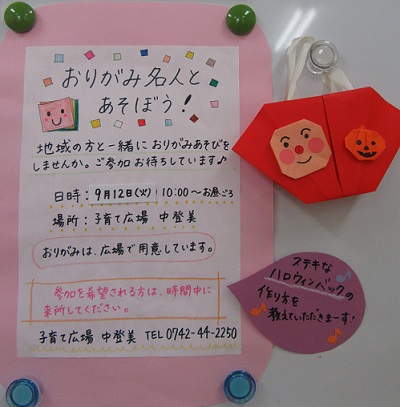 おりがみ名人と
あそぼう!
地域の方と一緒におりがみあそびを
しませんか。ご参加お待ちしています♪
日時:9月12日(火)10:00〜お昼ごろ
場所:子育て広場 中登美
おりがみは、広場で用意しています。
参加を希望される方は、時間中に
来所してください。
子育て広場 中登美 TEL 0742-44-2250
ステキな
ハロウィンバックの
作り方を
教えていただきまーす!